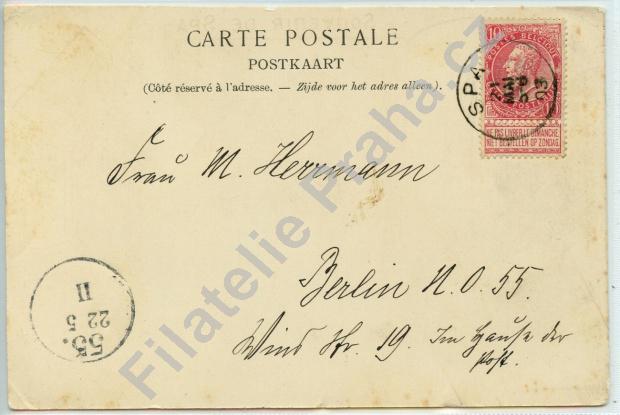 CARTE POSTALE
POSTKAART
(Côté réservé à l'adresse. — Zijde voor het adres alleen).
10
POSTES BELGIQUE
POSTERIJEN
NE PAS LIVRER LE DIMANCHE
NIET BESTELLEN OP ZONDAG
SPA
21
MAI
03
Frau M. Herrmann
Berlin N.O. 55.
Wins Str. 19. Im Hause der
Post.
55.
22 5
II
Filatelie Praha.cz